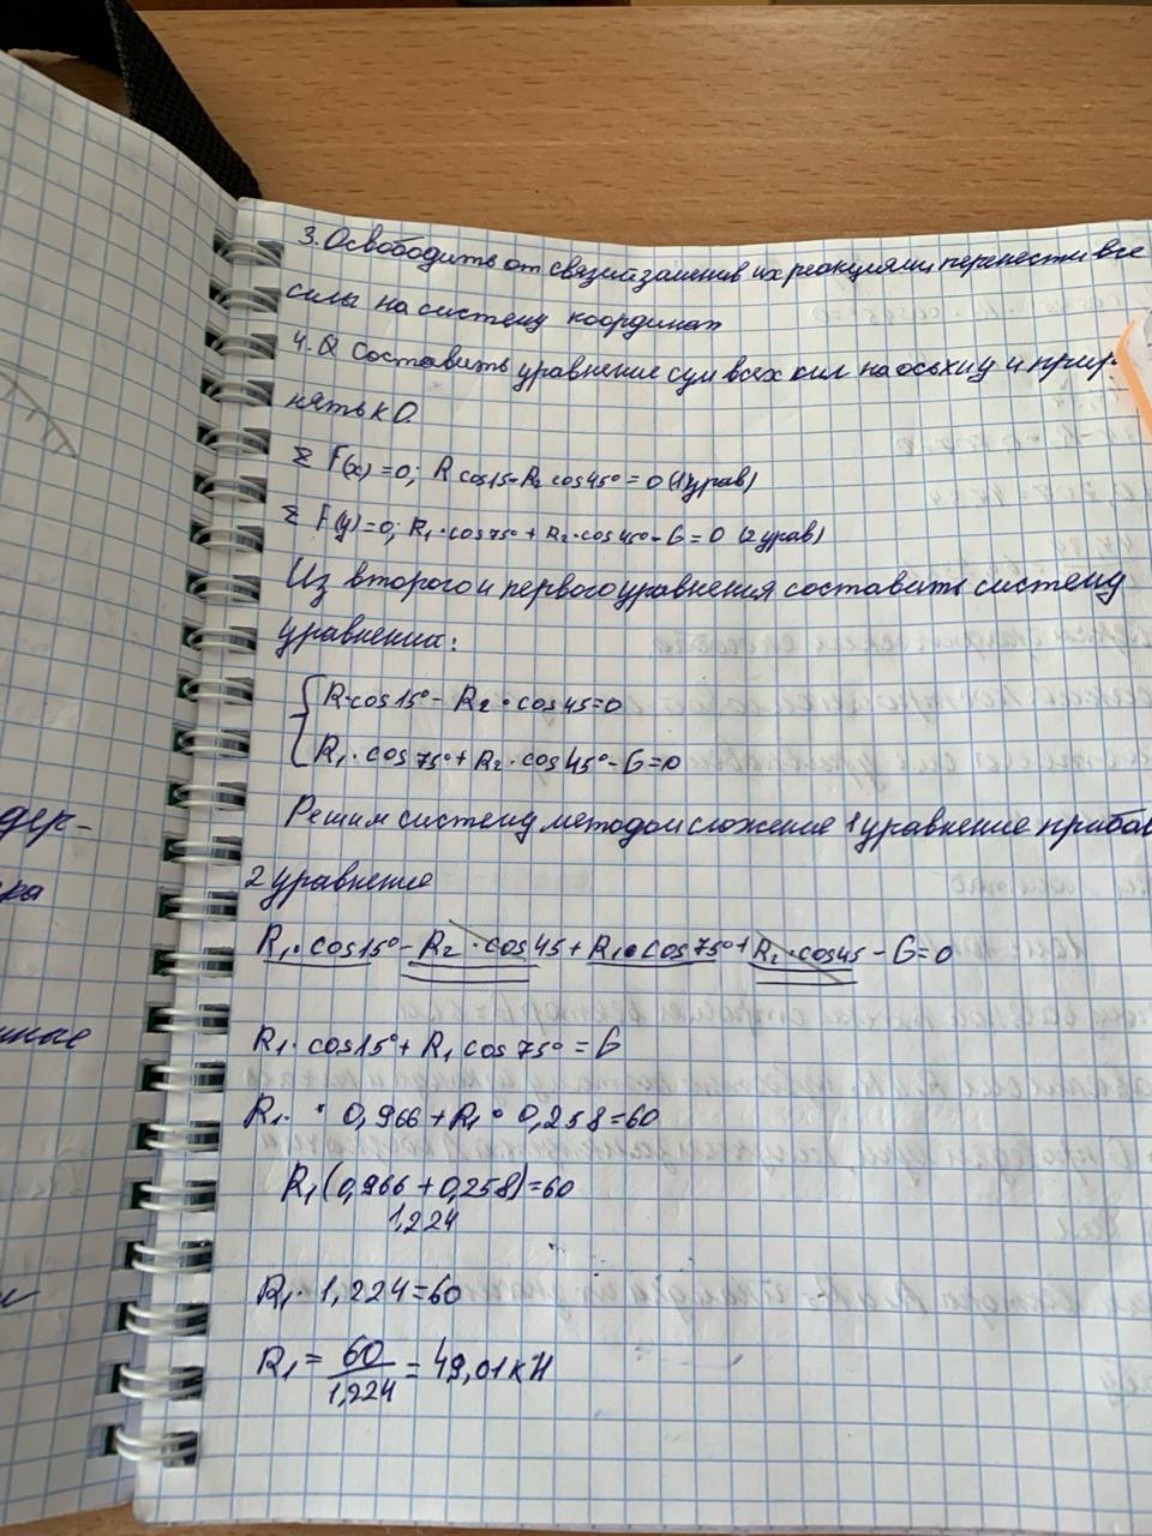 3. Освободить от связий заменив их реакциями, перенести все
силы на систему координат
4. Составить уравнение сум всех сил на ось x и y и прир-
нять к 0.
Σ F(x) = 0; R cos15 - R₂ cos45° = 0 (1 урав)
Σ F(y) = 0; R₁ · cos75° + R₂ · cos45° - G = 0 (2 урав)
Из второго и первого уравнения составить систему
уравнения:
R · cos15° - R₂ · cos45 = 0
R₁ · cos75° + R₂ · cos45° - G = 0
Решим систему методом сложение 1 уравнение прибав
2 уравнение
R₁ · cos15° - R₂ · cos45 + R₁ · cos75° + R₂ · cos45 - G = 0
R₁ · cos15° + R₁ cos75° = G
R₁ · 0,966 + R₁ · 0,258 = 60
R₁ (0,966 + 0,258) = 60
1,224
R₁ · 1,224 = 60
R₁ = 60/1,224 = 49,01 кН
дер-
ка